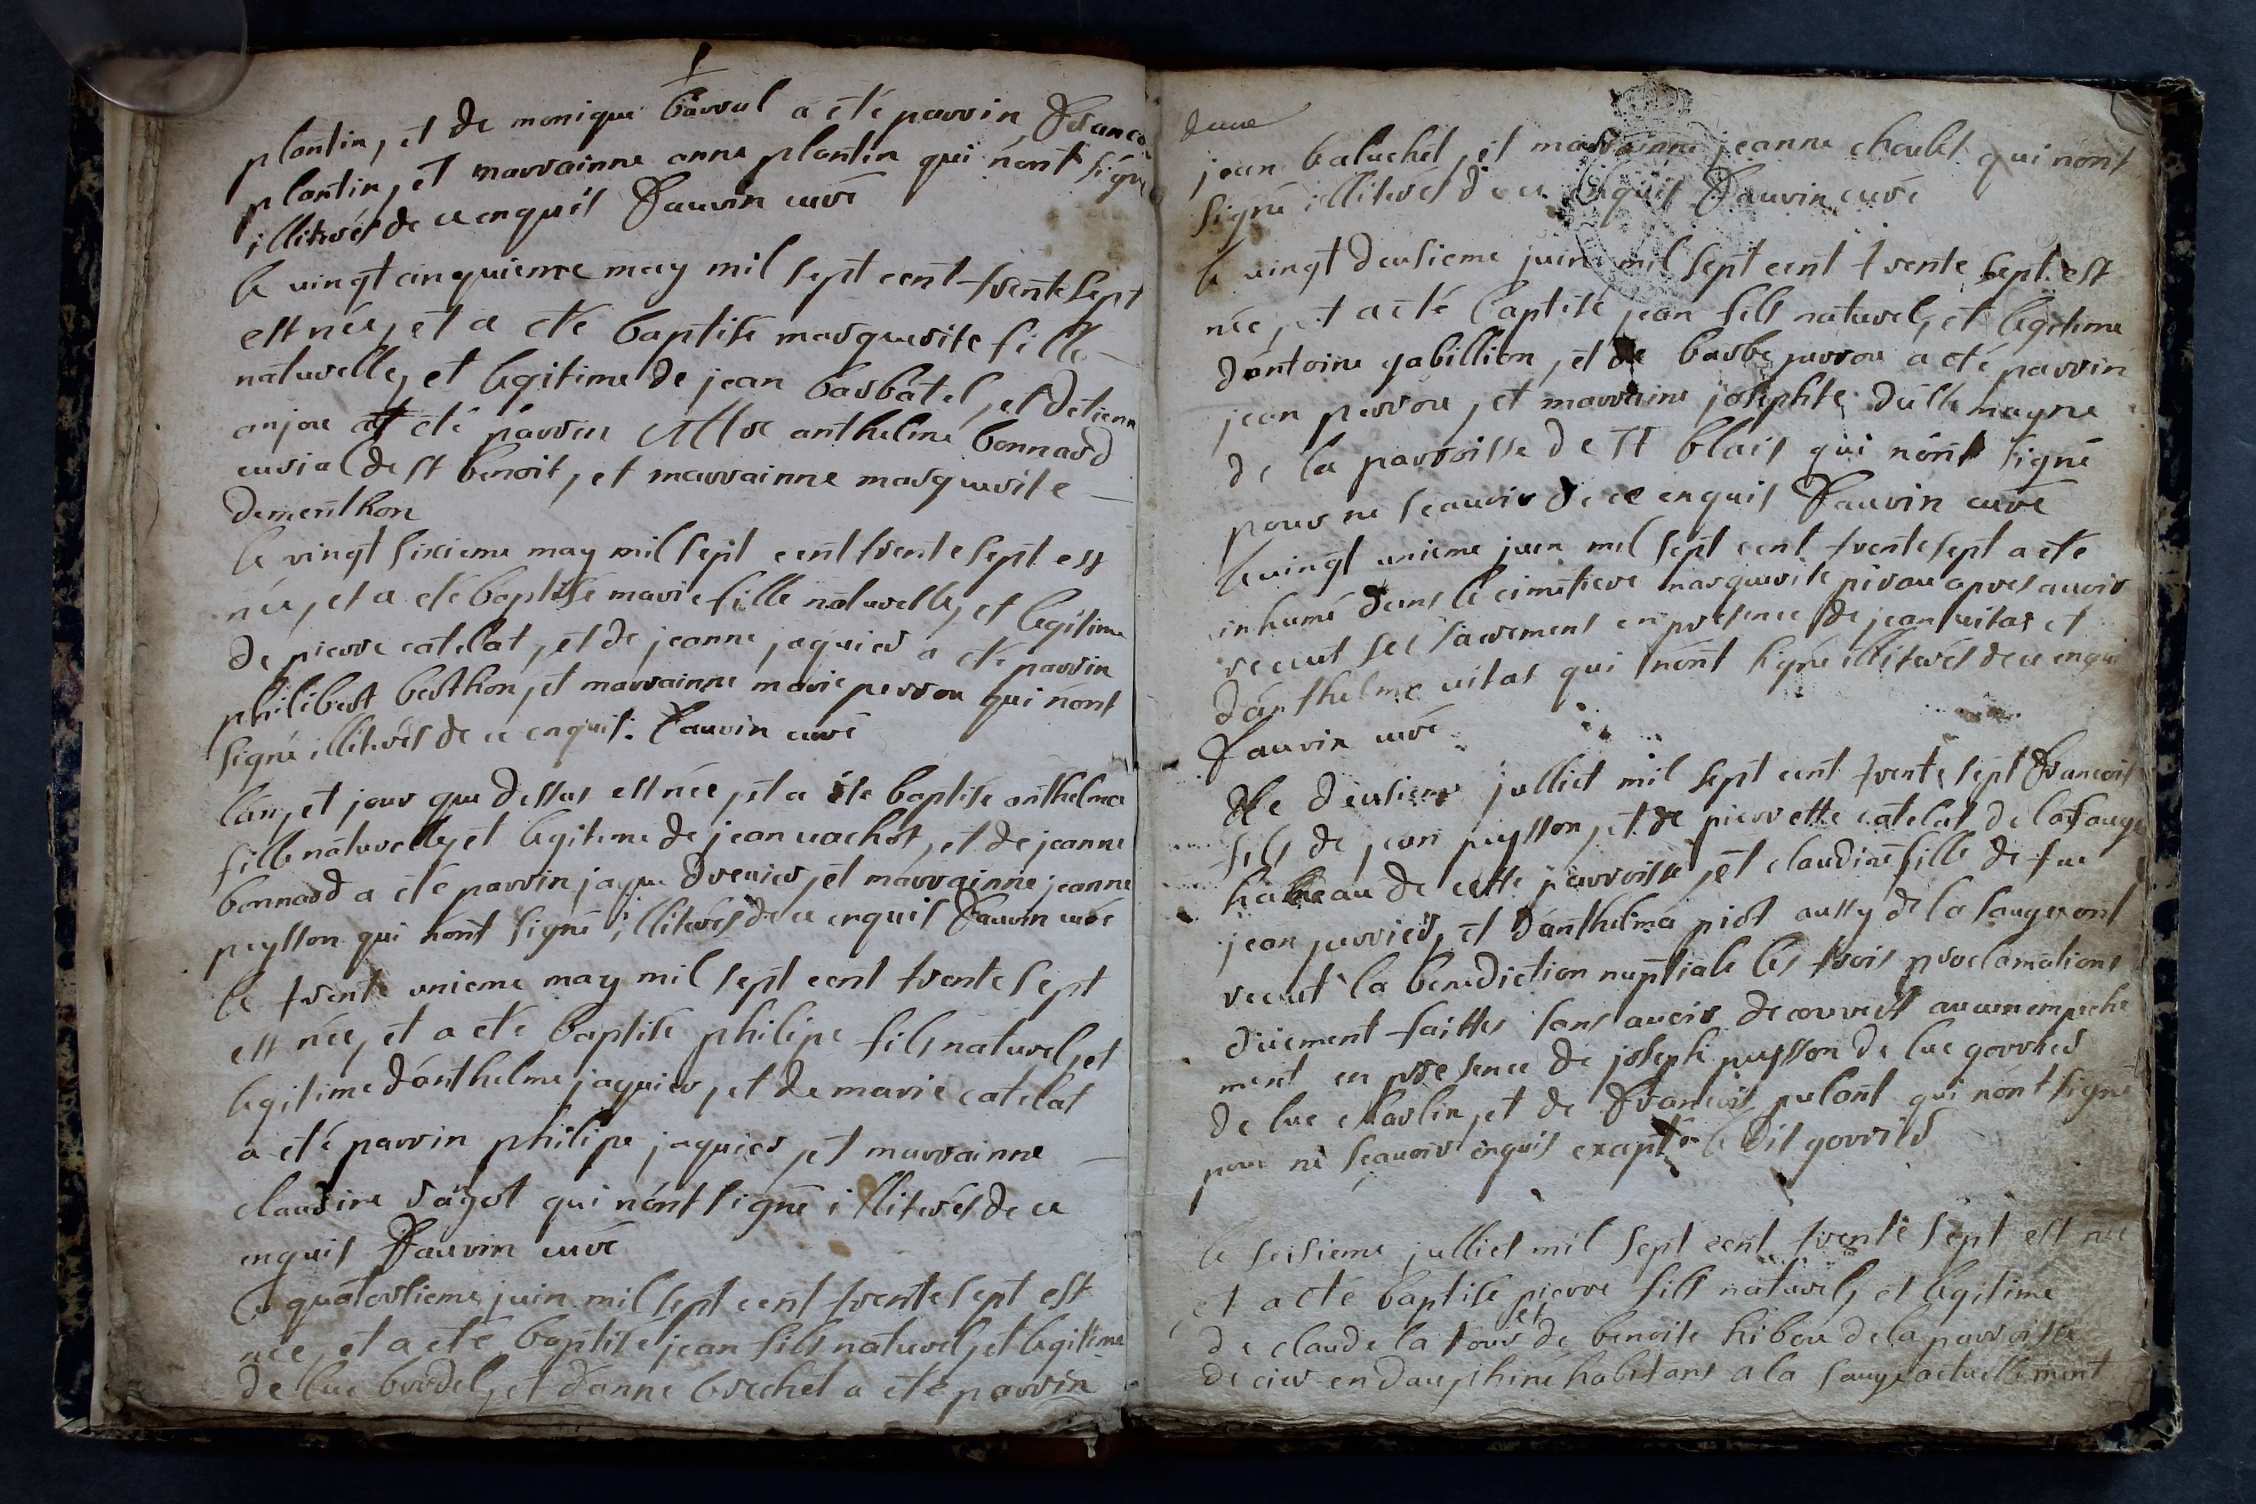 plantin, et de monique barrul a eté parrin Franco
plantin, et marrainne anne plantin qui n'ont signé
illiterés de ce enquis Fauvin curé
le vingt cinquieme may mil sept cent trente sept
est née, et a eté baptisé marguerite fille
naturelle, et legitime de jean barbatel, et detienn
anjou a eté parrin Mre anthelme bonnard
curial de st benoit, et marrainne marguerite
dementhon
le vingt sixieme may mil sept cent trente sept est
née, et a eté baptisé marie fille naturelle, et legitime
de pierre catelat, et de jeanne jaquier a eté parrin
philibert berthon, et marrainne marie perrou qui n'ont
signé illiterés de ce enquis. Fauvin curé
l'an, et jour que dessus est née, et a eté baptisé anthelma
fille naturelle, et legitime de jean vachot, et de jeanne
bonnard a eté parrin jaque drevier, et marrainne jeanne
peysson qui n'ont signé illiterés de ce enquis Fauvin curé
le trente unieme may mil sept cent trente sept
est née, et a eté baptisé philipe fils naturel, et
legitime d'anthelme jaquier, et de marie catelat
a eté parrin philipe jaquier, et marrainne
claudine sagot qui n'ont signé illiterés de ce
enquis Fauvin curé
le quatorsieme juin mil sept cent trente sept est
née, et a eté baptisé jean fils naturel, et legitime
de luc bordel, et d'anne brechet a eté parrin
deux
jean baluchet, et marrainne jeanne choulet qui n'ont
signé illiterés de ce enquis Fauvin curé
le vingt deusieme juin mil sept cent trente sept est
née, et a eté baptisé jean fils naturel, et legitime
d'antoine gabillion, et de barbe perrou a eté parrin
jean perrou, et marraine josephte dulle mayne
de la parroisse de st blais qui n'ont signé
pour ne scauoir de ce enquis Fauvin curé
le vingt unieme juin mil sept cent trente sept a eté
inhumé dans le cimetiere marguerite pirou apres auoir
recut ses sacrements en presence de jean vitas et
d'anthelme vitas qui n'ont signé illiterés de ce enquis
Fauvin curé
le deusieme julliet mil sept cent trente sept Francois
fils de jean peysson, et de pierrette catelat de la sauge
hameau de cette parroisse, et claudine fille de feu
jean perrier, et d'anthelma piot aussy de la sauge ont
recut la benediction nuptiale les trois proclamations
düement faittes sans auoir decouvert aucun empeche
ment en presence de joseph peysson de luc gorrier
de luc charlin, et de Francois pulant qui n'ont signé
pour ne scauoir enquis exapté le dit gorrier
le seisieme julliet mil sept cent trente sept est née
et a eté baptisé pierre fils naturel, et legitime
de claude la tour et de benoite hibou de la parroisse
de cier en dauphiné habitant a la sauge actuellement